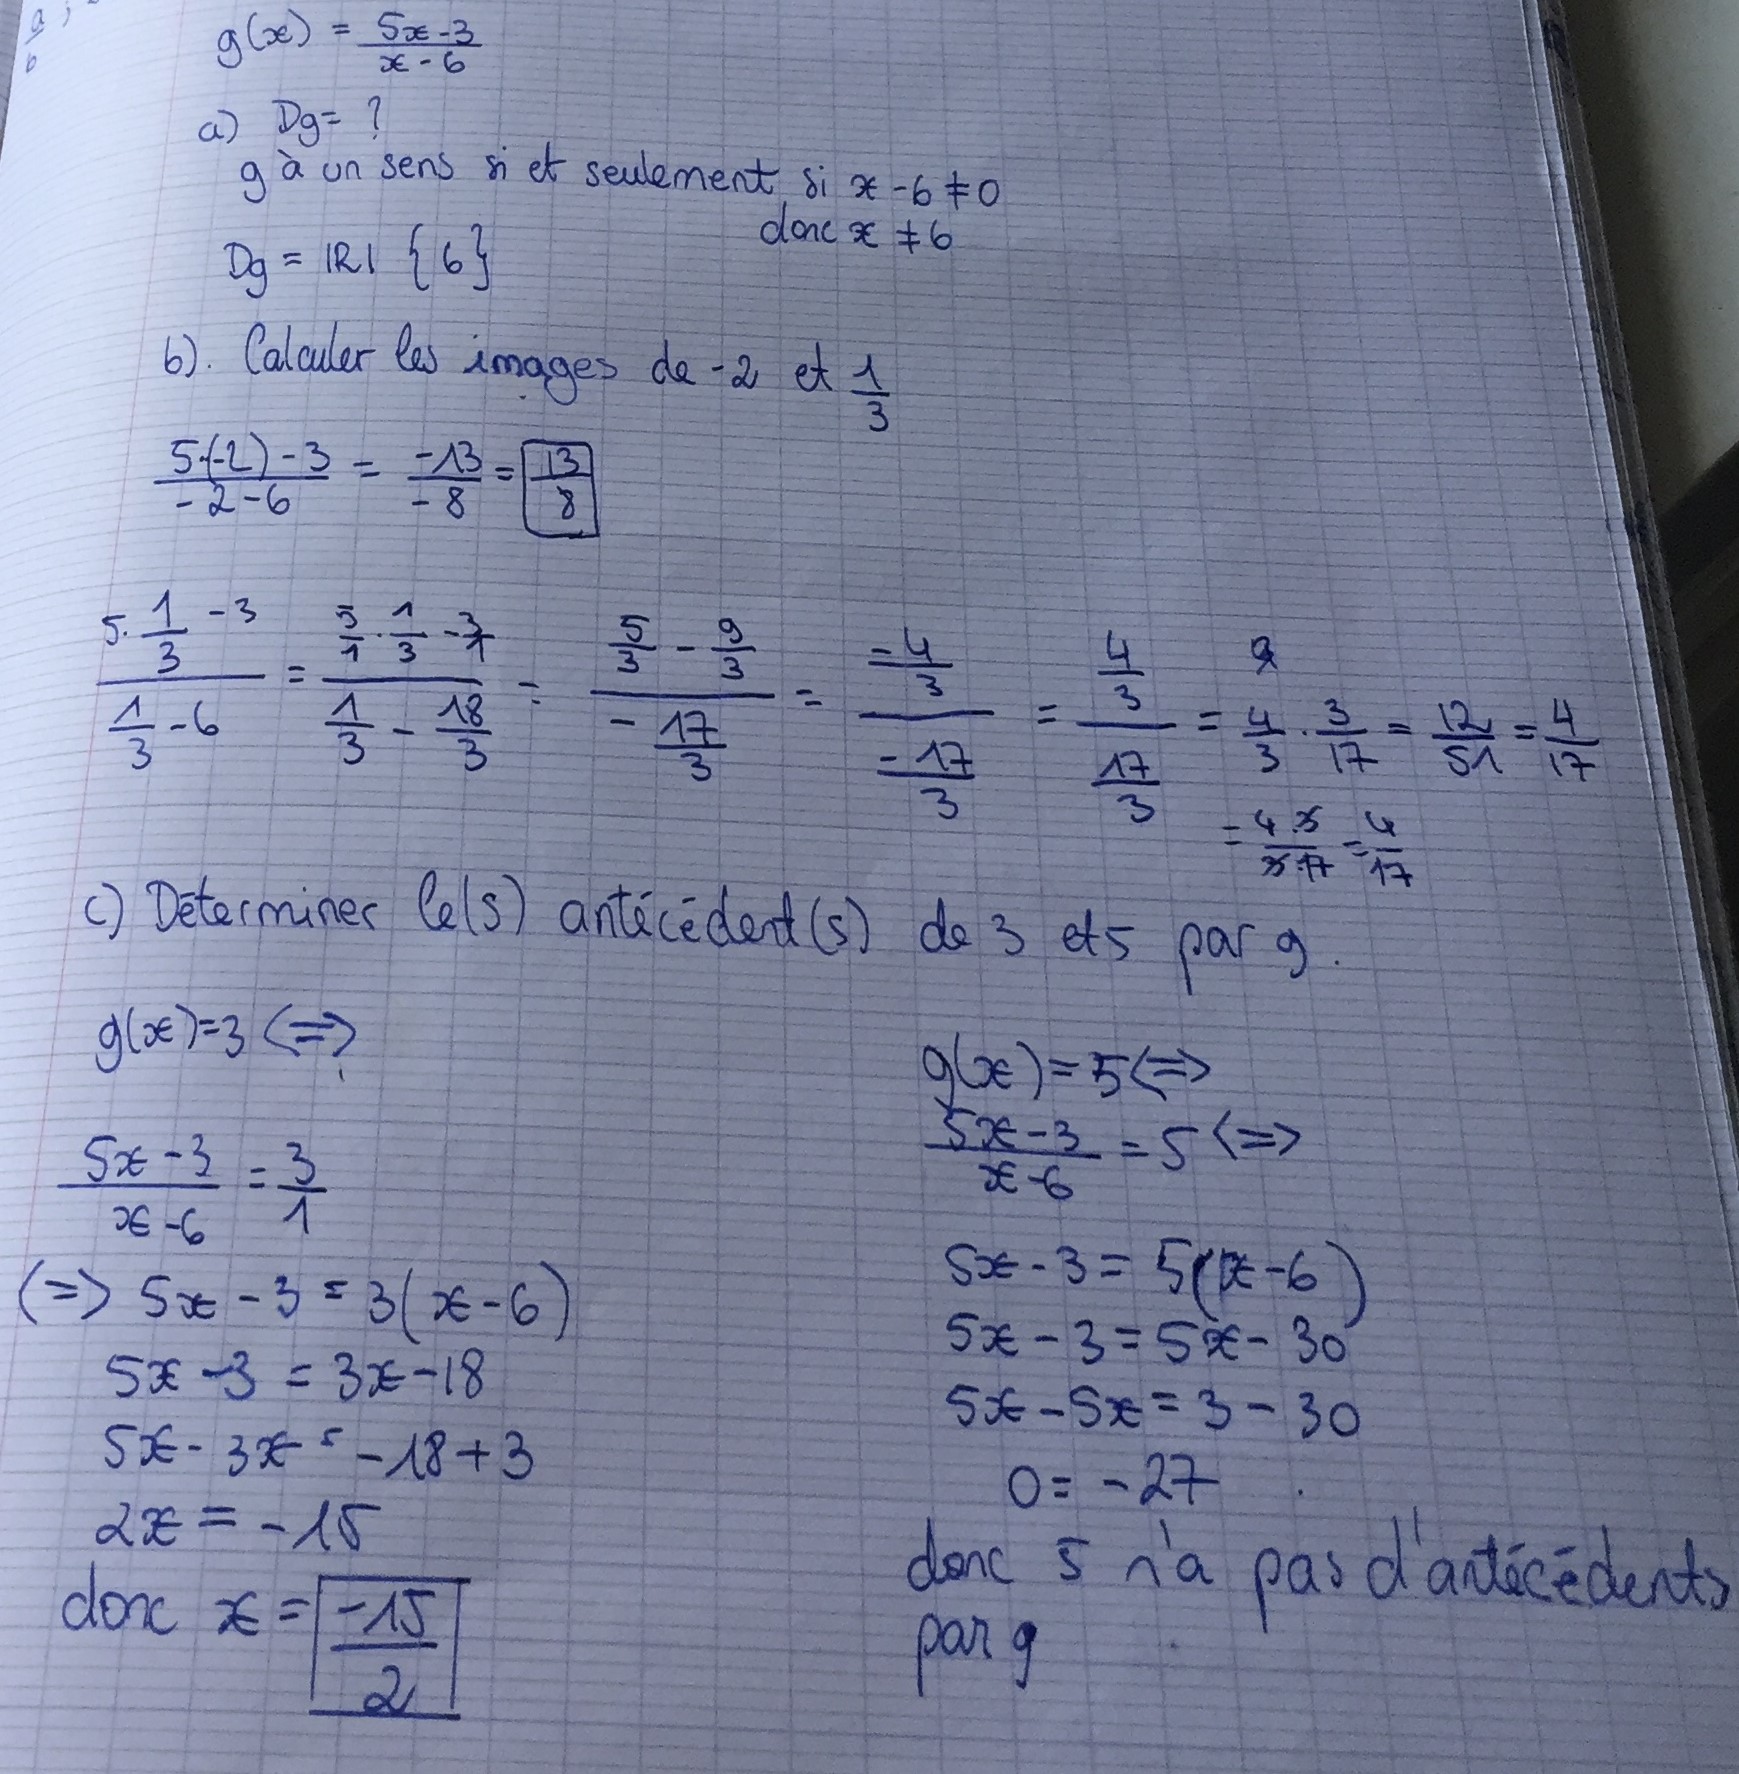 g(x) = (5x-3)/(x-6)
a) Dg = ?
g à un sens si et seulement si x-6≠0
donc x ≠ 6
Dg = |R| {6}
b). Calculer les images de -2 et 1/3
(5·(-2)-3)/(-2-6) = -13/-8 = 13/8
(5·1/3 -3)/(1/3 -6) = (5/1·1/3 -3/1)/(1/3 - 18/3) = (5/3 - 9/3)/(-17/3) = (-4/3)/(-17/3) = (4/3)/(17/3) = 4/3·3/17 = 12/51 = 4/17
= (4·3)/(3·17) = 4/17
c) Déterminer le(s) antécédent(s) de 3 et 5 par g.
g(x)=3 <=>
(5x-3)/(x-6) = 3/1
<=> 5x-3 = 3(x-6)
5x-3 = 3x-18
5x-3x = -18+3
2x = -15
donc x = -15/2
g(x)=5 <=>
(5x-3)/(x-6) = 5 <=>
5x-3 = 5(x-6)
5x-3 = 5x-30
5x-5x = 3-30
0 = -27
donc 5 n'a pas d'antécédents
par g